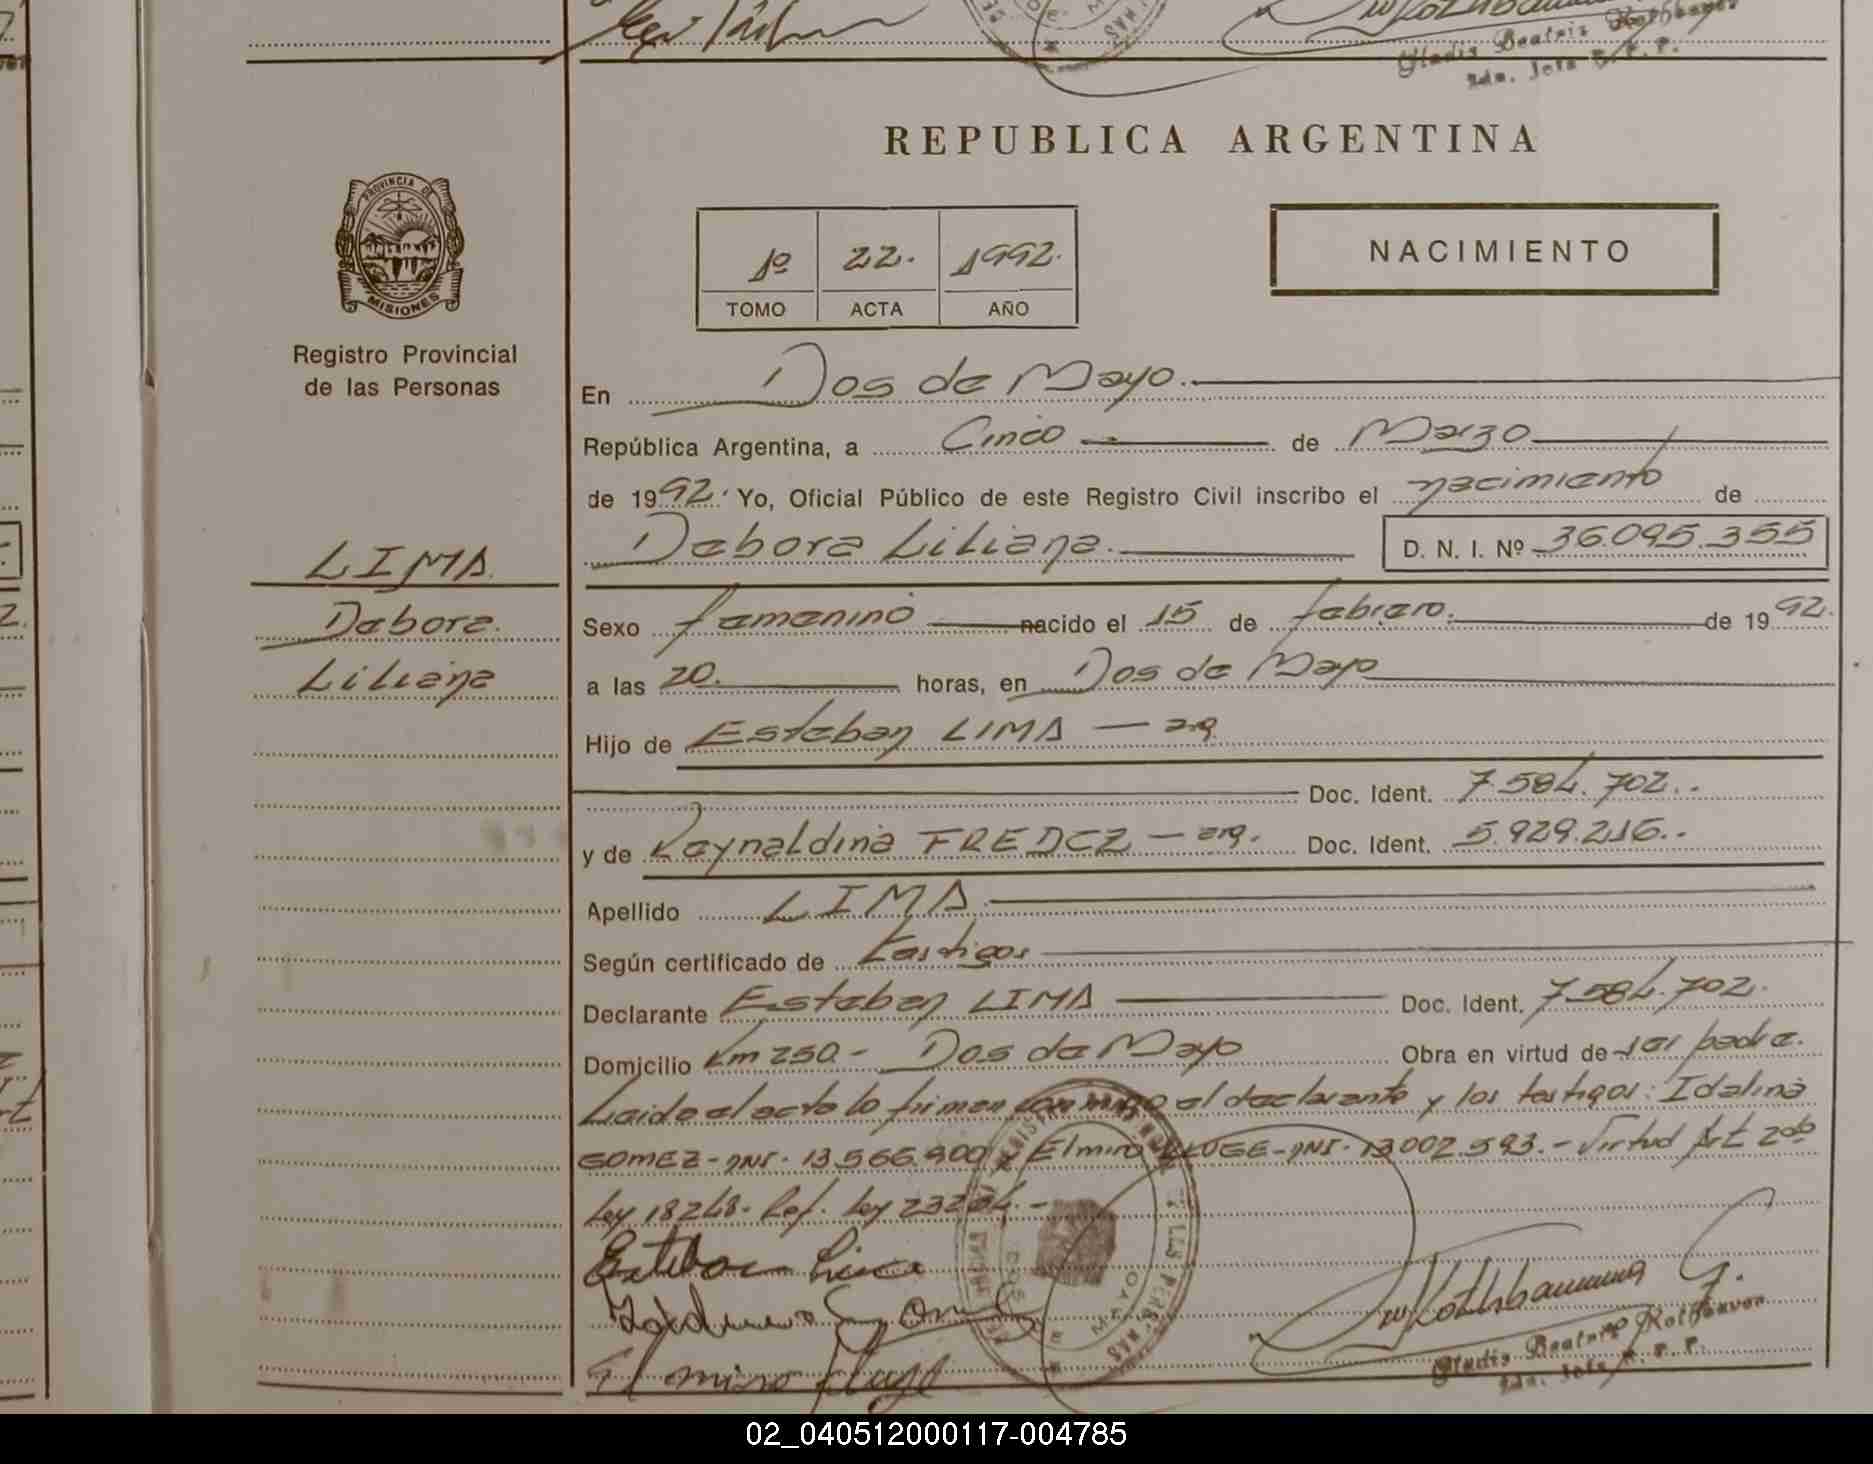 REPUBLICA ARGENTINA
PROVINCIA DE
MISIONES
Registro Provincial
de las Personas
1º 22. 1992.
TOMO ACTA AÑO
NACIMIENTO
En Dos de Mayo.
República Argentina, a Cinco de Marzo
de 1992. Yo, Oficial Público de este Registro Civil inscribo el nacimiento de
Debora Liliana. D. N. I. Nº 36.095.355
LIMA.
Debora.
Liliana
Sexo femenino nacido el 15 de febrero. de 1992.
a las 20. horas, en Dos de Mayo
Hijo de Esteban LIMA — arg
Doc. Ident. 7.584.702..
y de Reynaldina FREDEZ — arg. Doc. Ident. 5.929.216..
Apellido LIMA
Según certificado de testigos
Declarante Esteban LIMA Doc. Ident. 7.584.702.
Domicilio Km 250.- Dos de Mayo Obra en virtud de ser padre.
Leida el acta lo firman conmigo el declarante y los testigos: Idalina
GOMEZ-DNI. 13.566.900 y Elmiro KLUGE-DNI. 13.002.593.- Virtud Art 2do
Ley 18248. Ref. Ley 23264.-
Esteban Lima
Elmiro Kluge
Gladis Beatriz Rothbauer
02_040512000117-004785